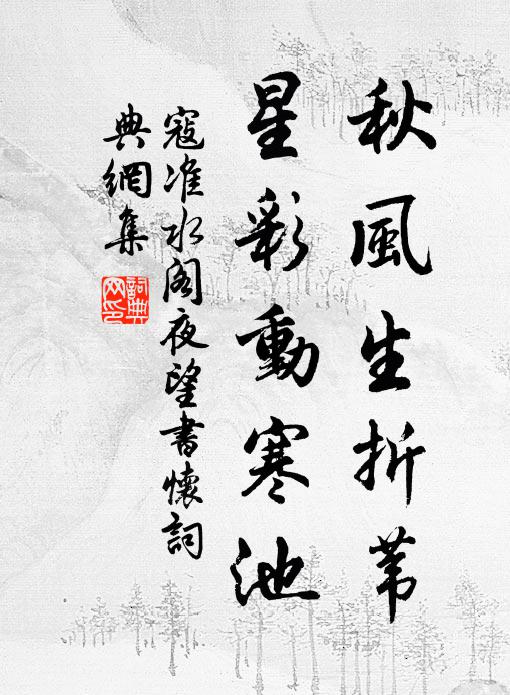 秋風生折苇
星彩動寒池
寇准水阁夜望書懷詞
典網集
詞典
网印